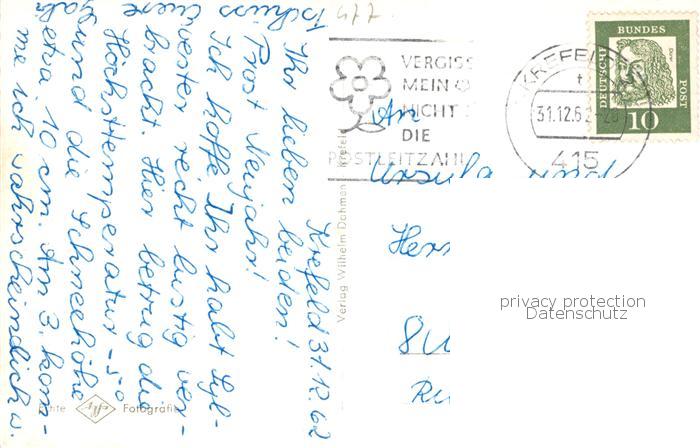 Krefeld 31.12.62
Ihr lieben beiden!
Prost Neujahr!
Ich hoffe Ihr habt Syl-
vester recht lustig ver-
bracht. Hier betrug die
Höchsttemperatur -5°
und die Schneehöhe
etwa 10 cm. Am 3. kom-
me ich wahrscheindlich w.
Tschüss
474
VERGISS
MEIN
NICHT
DIE
POSTLEITZAHL
KREFELD
t
31.12.62-20
415
DEUTSCHE
BUNDES
POST
10
An
Ursula und
Herr
Verlag Wilhelm Dahmen Krefeld
Echte Fotografie
privacy protection
Datenschutz